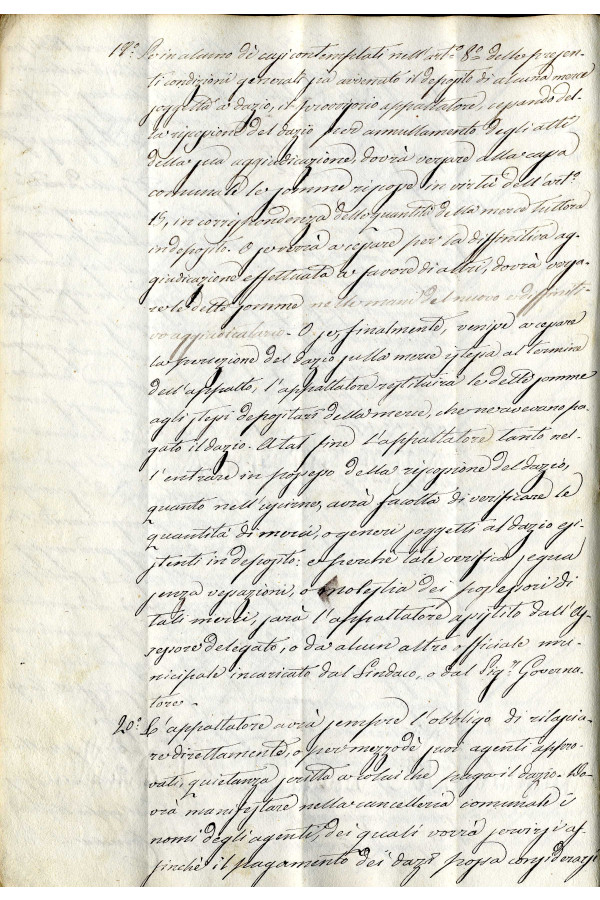 19.° Se in alcuno de' casi contemplati nell'art.° 8.° delle presen-
ti condizioni generali sia avvenuto il deposito di alcuna merce
soggetta a dazio, il provvisorio appaltatore, cessando del-
la riscossione del dazio per annullamento degli atti
della sua aggiudicazione, dovrà versare alla cassa
comunale le somme riscosse in virtù dell'art.°
15, in corrispondenza delle quantità della merce tuttora
in deposito. O se verrà a cessare per la diffinitiva ag-
giudicazione effettuata a favore di altri, dovrà versa-
re le dette somme nelle mani del nuovo e diffiniti-
vo aggiudicatario. O se, finalmente, venisse a cessare
la percezione del dazio sulla merce istessa al termine
dell'appalto, l'appaltatore restituirà le dette somme
agli stessi depositari della merce, che ne avevano pa-
gato il dazio. A tal fine l'appaltatore tanto nel-
l'entrare in possesso della riscossione del dazio,
quanto nell'uscirne, avrà facoltà di verificare le
quantità di merci, o generi soggetti al dazio esi-
stenti in deposito: e perchè tale verifica segua
senza vessazioni, o molestia dei possessori di
tali merci, sarà l'appaltatore assistito dall'As-
sessore delegato, o da alcun altro officiale mu-
nicipale incaricato dal Sindaco, o dal Sig.r Governa-
tore.
20.° L'appaltatore avrà sempre l'obbligo di rilascia-
re direttamente, o per mezzo de' suoi agenti appro-
vati, quietanza scritta a colui che paga il dazio. Do-
vrà manifestare nella cancelleria comunale i
nomi degli agenti, dei quali vorrà servirsi af-
finchè il pagamento dei dazi possa considerarsi